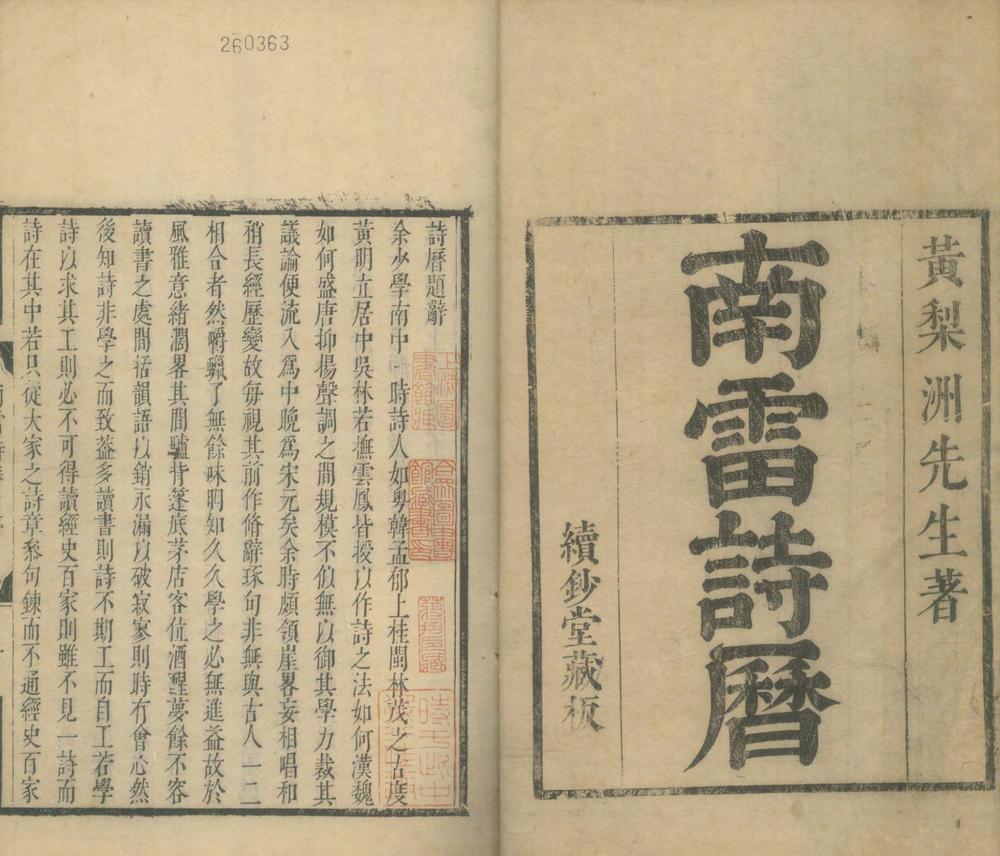 黃梨洲先生著
南雷詩曆
續鈔堂藏板
260363
詩曆題辭
余少學南中一時詩人如粵韓孟郁上桂閩林茂之古度
黃明立居中吳林若撫雲鳳皆授以作詩之法如何漢魏
如何盛唐抑揚聲調之間規模不似無以御其學力裁其
議論便流入爲中晚爲宋元矣余時頗領崖畧妄相唱和
稍長經歷變故每視其前作脩辭琢句非無與古人一二
相合者然嚼蠟了無餘味明知久久學之必無進益故於
風雅意緒濶畧其間驢背篷底茅店客位酒醒夢餘不容
讀書之處間括韻語以銷永漏以破寂寥則時有會心然
後知詩非學之而致葢多讀書則詩不期工而自工若學
詩以求其工則必不可得讀經史百家則雖不見一詩而
詩在其中若只從大家之詩章叅句鍊而不通經史百家